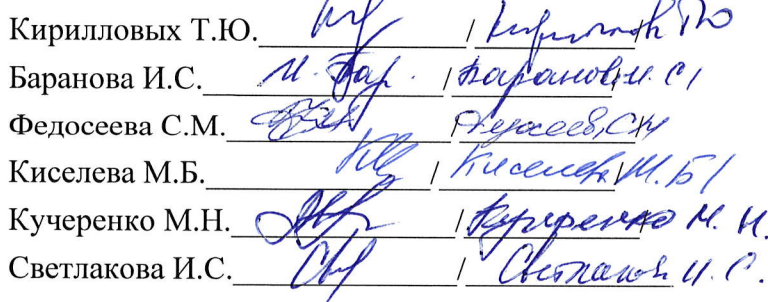 Кирилловых Т.Ю. / Кириллових ТЮ
Баранова И.С. И. Бар. / Баранова И.С /
Федосеева С.М. / Федосеева СМ
Киселева М.Б. / Киселева М.Б /
Кучеренко М.Н. / Кучеренко М. Н.
Светлакова И.С. / Светлакова И.С.